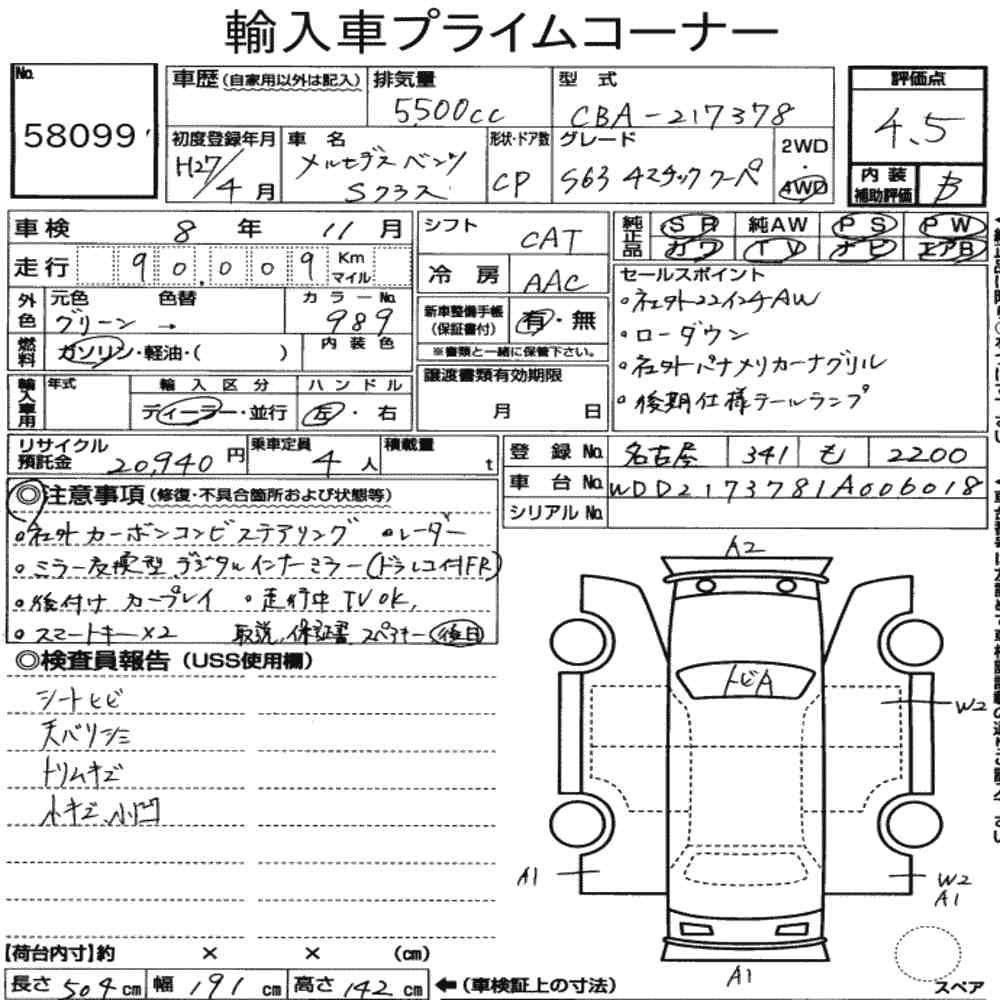 輸入車プライムコーナー
No. 58099
車歴 (自家用以外は記入)
排気量 5500cc
型式 CBA-217378
評価点 4.5
初度登録年月 H27/4月
車名 メルセデスベンツ Sクラス
形状・ドア数 CP
グレード S63 4マチッククーペ
2WD・4WD
内装補助評価 B
車検 8年 11月
シフト CAT
純正品 SR 純AW PS PW
カワ TV ナビ エアB
走行 90,009 Km マイル
冷房 AAC
セールスポイント
・社外22インチAW
・ローダウン
・社外パナメリカーナグリル
・後期仕様テールランプ
外色 元色 グリーン → 色替 カラーNo. 989
新車整備手帳(保証書付) 有・無
※書類と一緒に保管下さい。
燃料 ガソリン・軽油・( ) 内装色
輸入車用 年式 輸入区分 ディーラー・並行 ハンドル 左・右
譲渡書類有効期限 月 日
リサイクル預託金 20,940円 乗車定員 4人 積載量 t
登録No. 名古屋 341 も 2200
車台No. WDD2173781A006018
シリアルNo.
◎注意事項 (修復・不具合箇所および状態等)
・社外カーボンコンビステアリング ・レーダー
・ミラー交換型デジタルインナーミラー(ドラレコ付FR)
・後付けカープレイ ・走行中TVOK,
・スマートキー×2 取説,保証書,スペアキー後日
◎検査員報告 (USS使用欄)
シートヒビ
天バリシミ
トリムキズ
小キズ、小凹
A2
トビA
W2
A1
W2
A1
A1
【荷台内寸】約 × × (cm)
長さ 504cm 幅 191cm 高さ 142cm ←(車検証上の寸法)
スペア